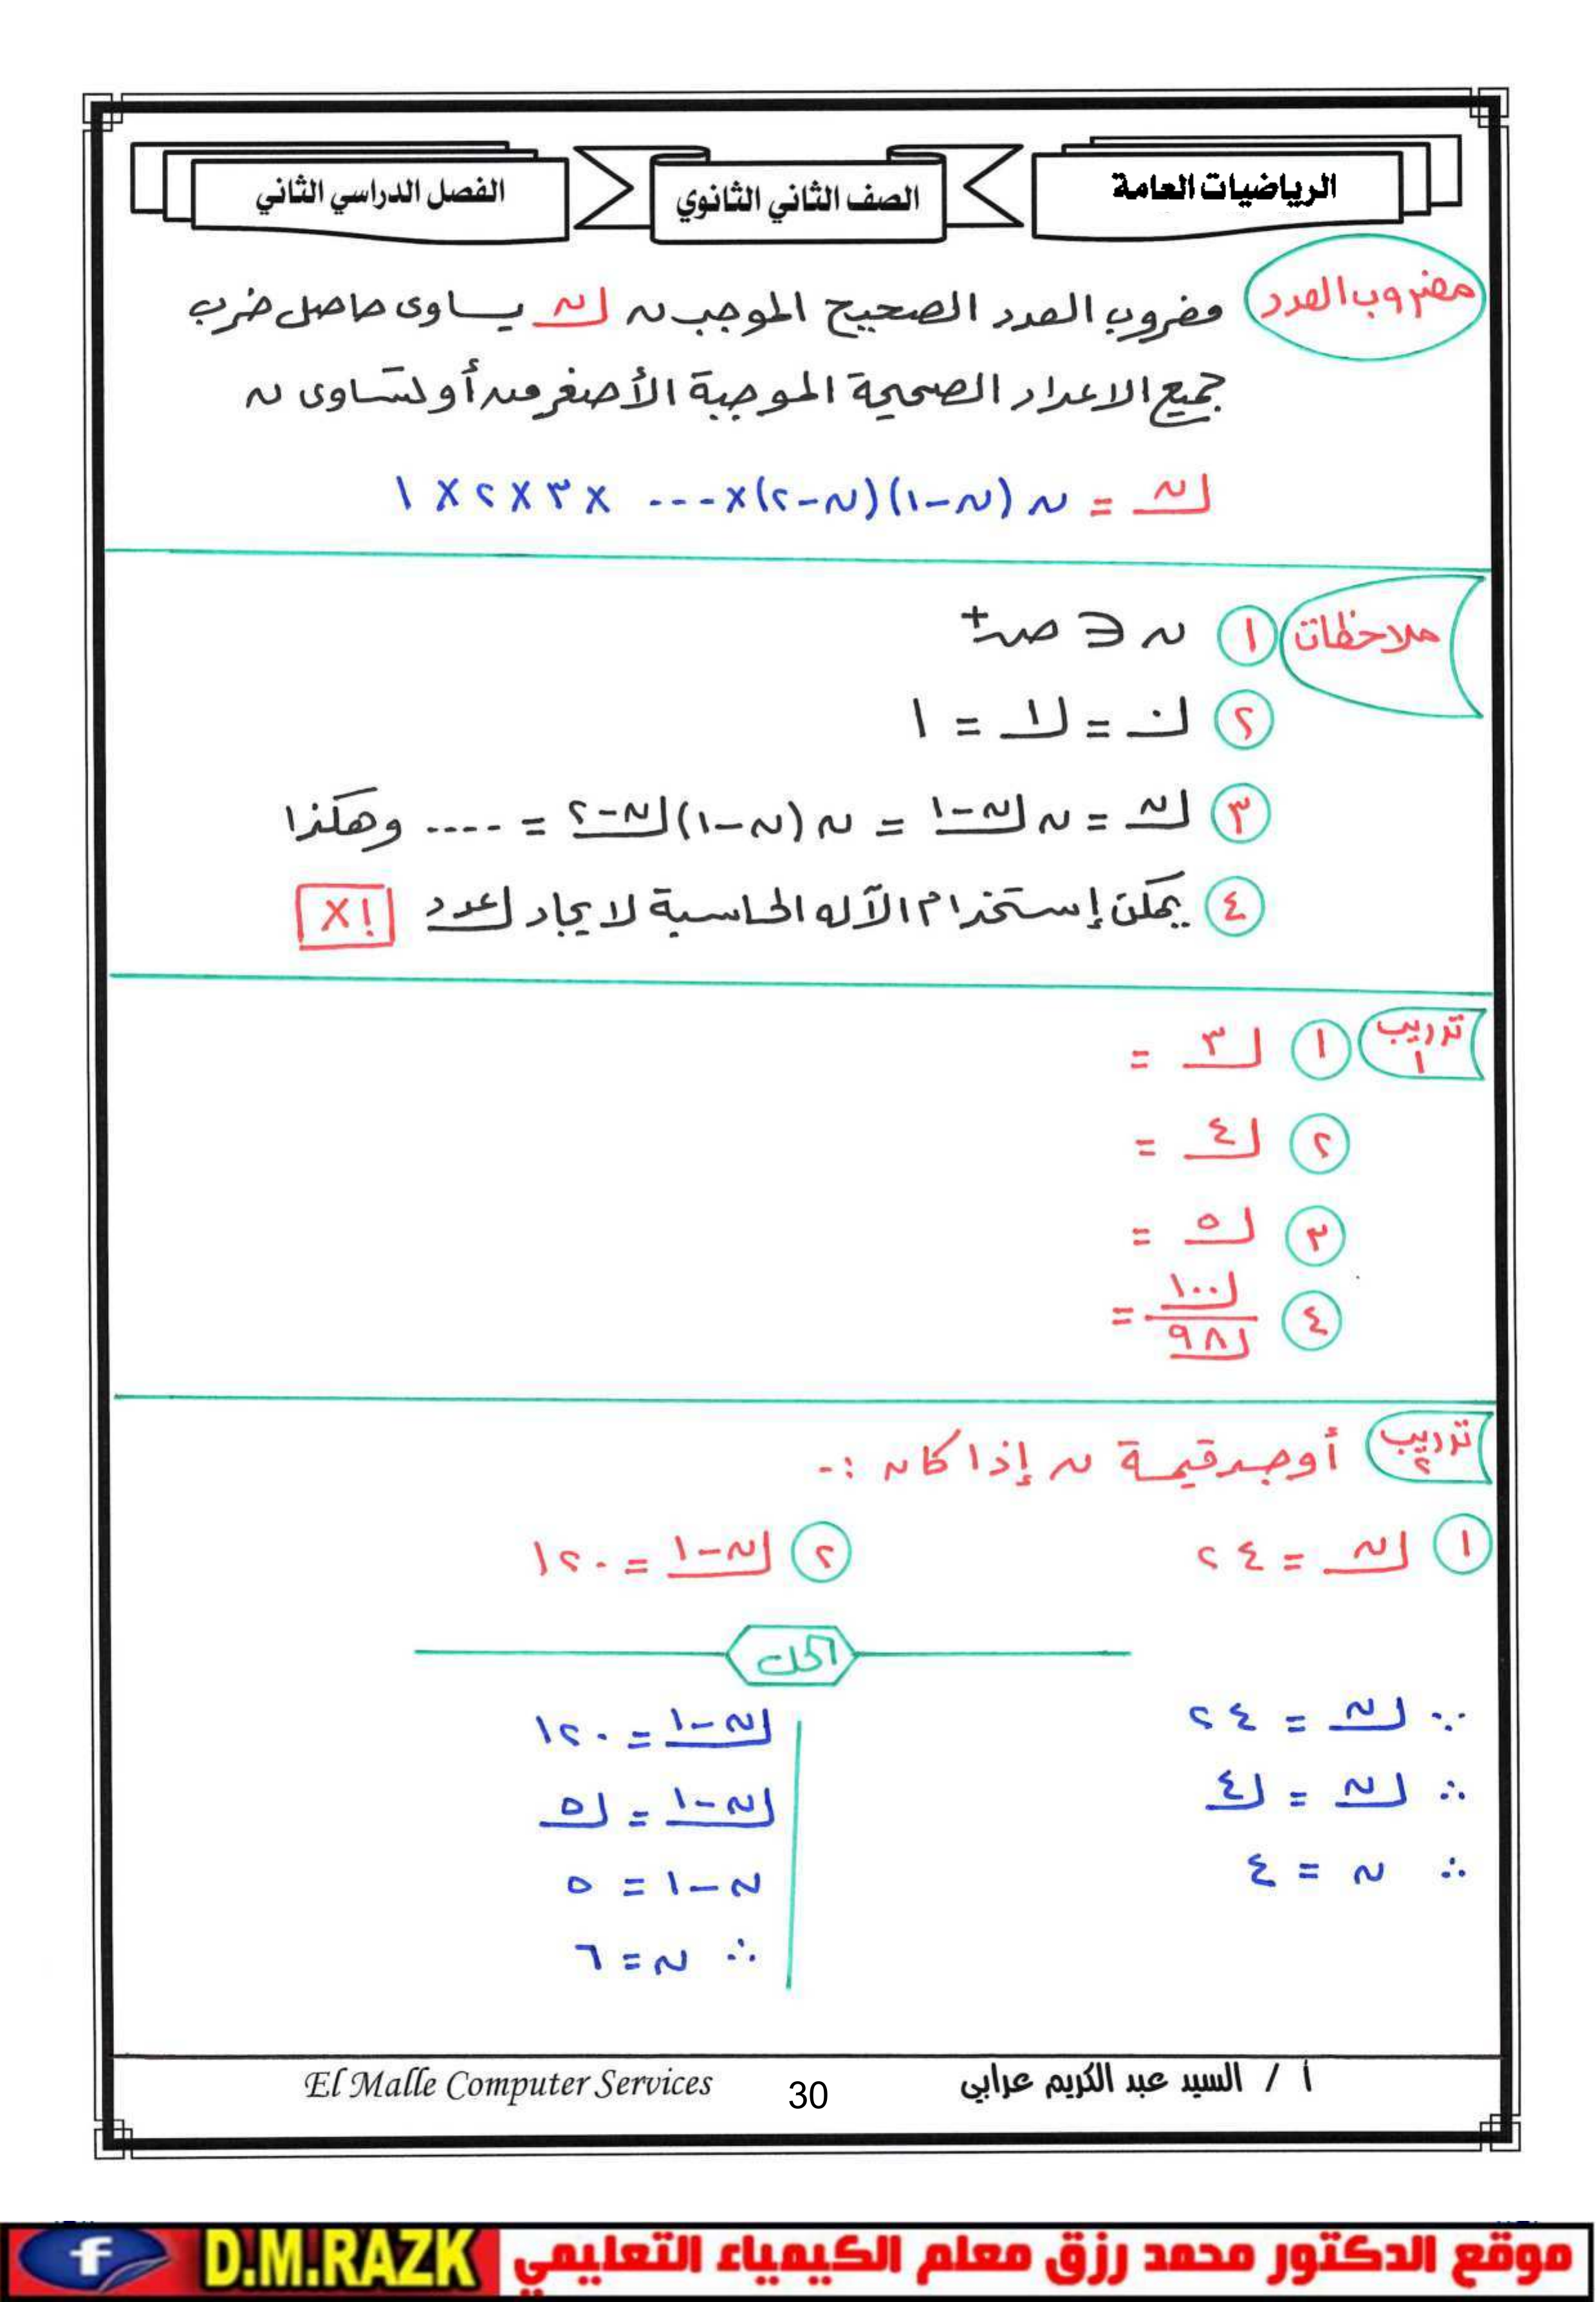 الرياضيات العامة
الصف الثاني الثانوي
الفصل الدراسي الثاني
مضروب العدد
مضروب العدد الصحيح الموجب ن لـن يساوى حاصل ضرب
جميع الاعداد الصحيحة الموجبة الأصغر من أو تساوى ن
لـن = ن (ن-١)(ن-٢)×--- ×٣×٢×١
ملاحظات
١ ن ∋ صـ+
٢ لـ٠ = لـ١ = ١
٣ لـن = ن لـن-١ = ن (ن-١) لـن-٢ = ---- وهكذا
٤ يمكن إستخدام الآله الحاسبة لايجاد لـعدد x!
تدريب ١
١ لـ٣ =
٢ لـ٤ =
٣ لـ٥ =
٤ لـ١٠٠ / لـ٩٨ =
تدريب ٢ أوجد قيمة ن إذا كان :-
١ لـن = ٢٤
٢ لـن-١ = ١٢٠
الحل
∵ لـن = ٢٤
∴ لـن = لـ٤
∴ ن = ٤
لـن-١ = ١٢٠
لـن-١ = لـ٥
ن-١ = ٥
∴ ن = ٦
أ / السيد عبد الكريم عرابي
30
El Malle Computer Services
موقع الدكتور محمد رزق معلم الكيمياء التعليمي
D.M.RAZK
f